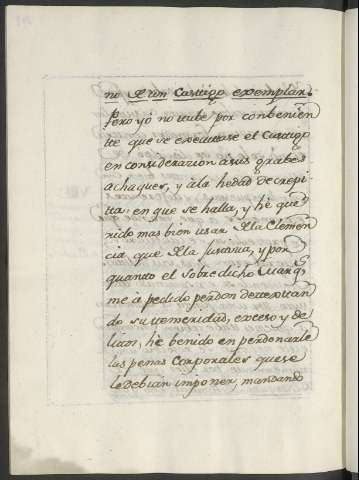 no de un Castigo exemplar.
Pero yo no tube por combenien
tte que se executase el Castigo
en considerazion a sus grabes
achaques, y a la hedad decrepi
tta en que se halla, y hè que
rido mas bien usar de la Clemen
cia, que de la Justicia, y por
quanto el sobredicho Marqs
me à pedido perdon detextan
do su temeridad, exceso y de
litos, hè benido en perdonarle
las penas Corporales que se
le debian imponer, mandando